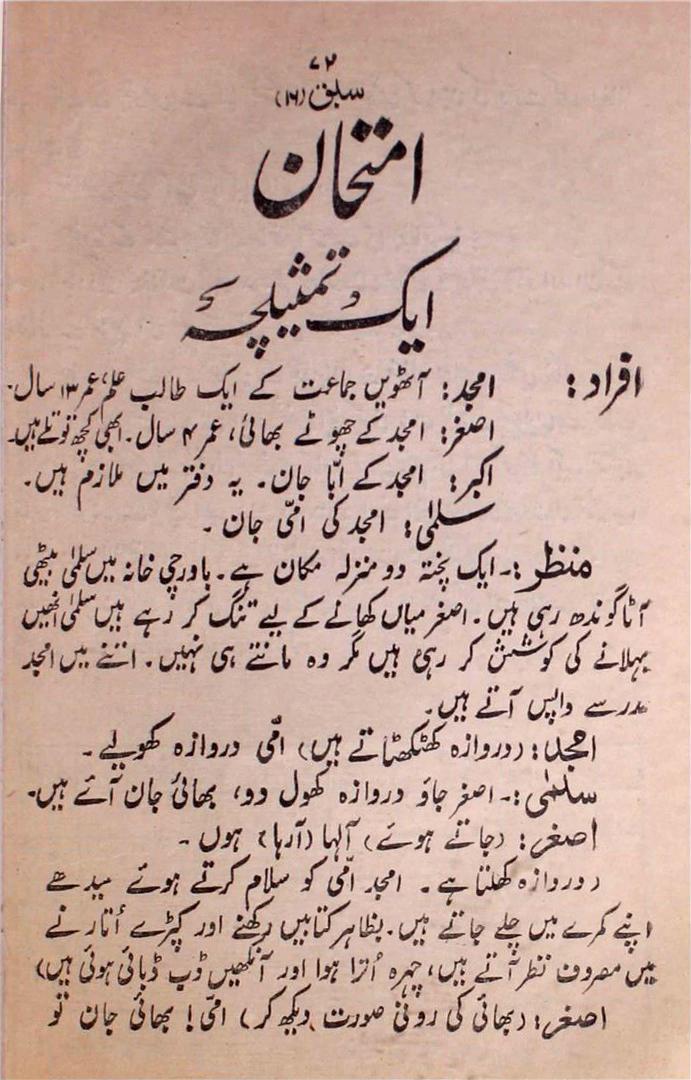 ۷۲
سبق (۱۶)
امتحان
ایک تمثیلچہ
افراد: امجد: آٹھویں جماعت کے ایک طالب علم، عمر ۱۳ سال۔
اصغر: امجد کے چھوٹے بھائی، عمر ۴ سال۔ ابھی کچھ توتلے ہیں۔
اکبر: امجد کے ابّا جان۔ یہ دفتر میں ملازم ہیں۔
سلمٰی: امجد کی امّی جان۔
منظر:۔ ایک پختہ دو منزلہ مکان ہے۔ باورچی خانہ میں سلمٰی بیٹھی
آٹا گوندھ رہی ہیں۔ اصغر میاں کھانے کے لیے تنگ کر رہے ہیں سلمٰی انھیں
بہلانے کی کوشش کر رہی ہیں مگر وہ مانتے ہی نہیں۔ اتنے میں امجد
مدرسے واپس آتے ہیں۔
امجد: (دروازہ کھٹکھٹاتے ہیں) امّی دروازہ کھولیے۔
سلمٰی:۔ اصغر جاؤ دروازہ کھول دو، بھائی جان آئے ہیں۔
اصغر: (جاتے ہوئے) آلہا (آرہا) ہوں۔
(دروازہ کھلتا ہے۔ امجد امّی کو سلام کرتے ہوئے سیدھے
اپنے کمرے میں چلے جاتے ہیں۔ بظاہر کتابیں رکھنے اور کپڑے اُتارنے
میں مصروف نظر آتے ہیں، چہرہ اُترا ہوا اور آنکھیں ڈب ڈبائی ہوئی ہیں)
اصغر: (بھائی کی رونی صورت دیکھ کر) امّی! بھائی جان تو